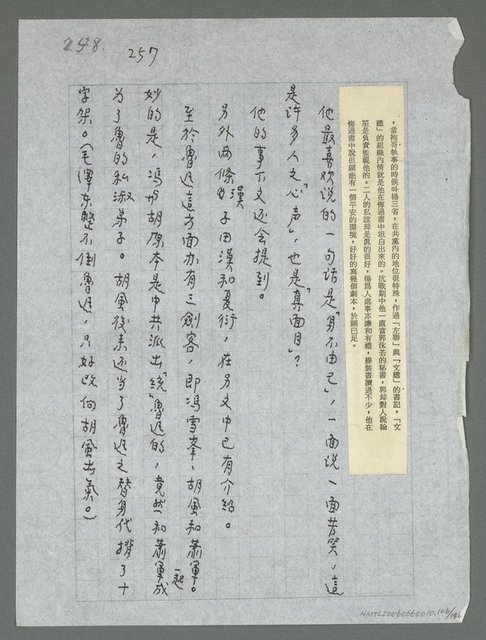 248.
257
，當袍哥執事的時候叫楊三省，在共黨內的地位很特殊，作過「左聯」與「文總」的書記，「文
總」的組織內情就是他在悔過書中坦白出來的。抗戰期中他一直當郭沫若的秘書，郭却對人說聯
絡是負責監視他的。二人的私誼却是真的很好，楊為人處事亦謙和有禮，線裝書讀過不少，他在
悔過書中說但願能有一個平安的環境，好好的寫幾個劇本，於願已足。
他最喜欢说的一句话是「身不由己」，一面说一面苦笑，這
是许多人之「心声」，也是「真面目」？
他的事下文还会提到。
另外两條漢子田漢和夏衍，在另文中已有介紹。
至於魯迅這方面亦有三劍客，即冯雪峯、胡風和萧軍。
妙的是，冯与胡原本是中共派出「統」魯迅的，竟然和萧軍一起成
為了魯的私淑弟子。胡風後来还当了魯迅之替身代揹了十
字架。（毛澤东整不倒魯迅，只好改向胡風出氣。）
NMTL20060660010.106/186